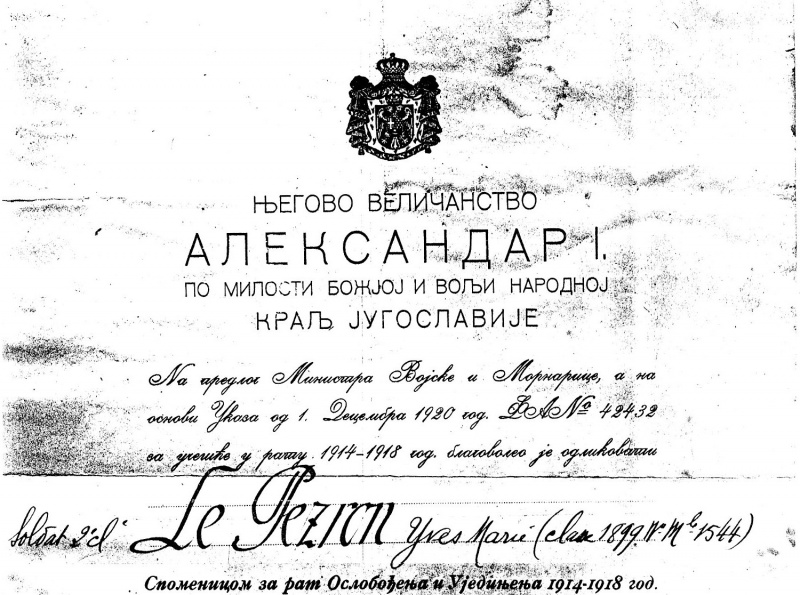 ЊЕГОВО ВЕЛИЧАНСТВО
АЛЕКСАНДАР I.
ПО МИЛОСТИ БОЖЈОЈ И ВОЉИ НАРОДНОЈ
КРАЉ ЈУГОСЛАВИЈЕ
На предлог Министра Војске и Морнарице, а на
основи Указа од 1. Децембра 1920 год. ЂА№ 42432
за учешће у рату 1914-1918 год. благоволео је одликовати
Soldat 2e cl Le Pezron Yves Marie (classe 1899 Nº Mle 1544)
Споменицом за рат Ослобођења и Уједињења 1914-1918 год.